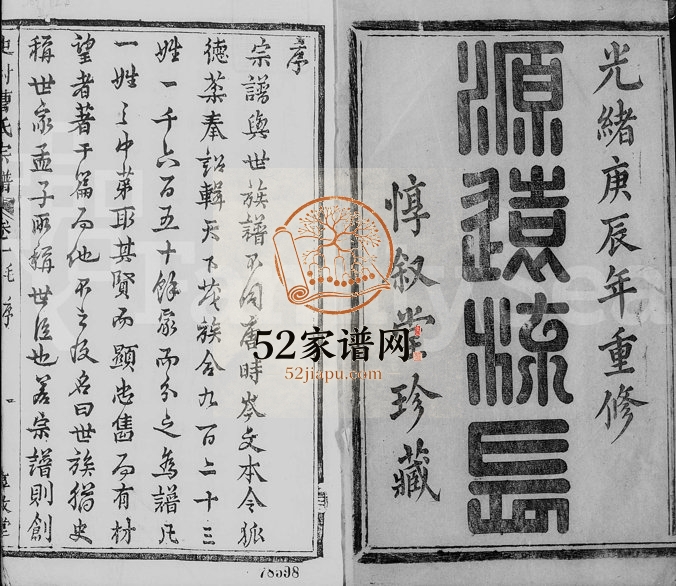 光緒庚辰年重修
源遠流長
惇叙堂珍藏
序
宗譜與世族譜不同舊時岑文本令狐
德棻奉詔輯天下茂族合九百二十三
姓一千六百五十餘家而分之為譜凡
一姓之中第取其賢而顯忠舊而有材
望者著于篇而他不之及名曰世族猶史
稱世家孟子所稱世臣也若宗譜則創
曹氏宗譜 卷一 序
惇敘堂
52家谱网
52jiapu.com
78598